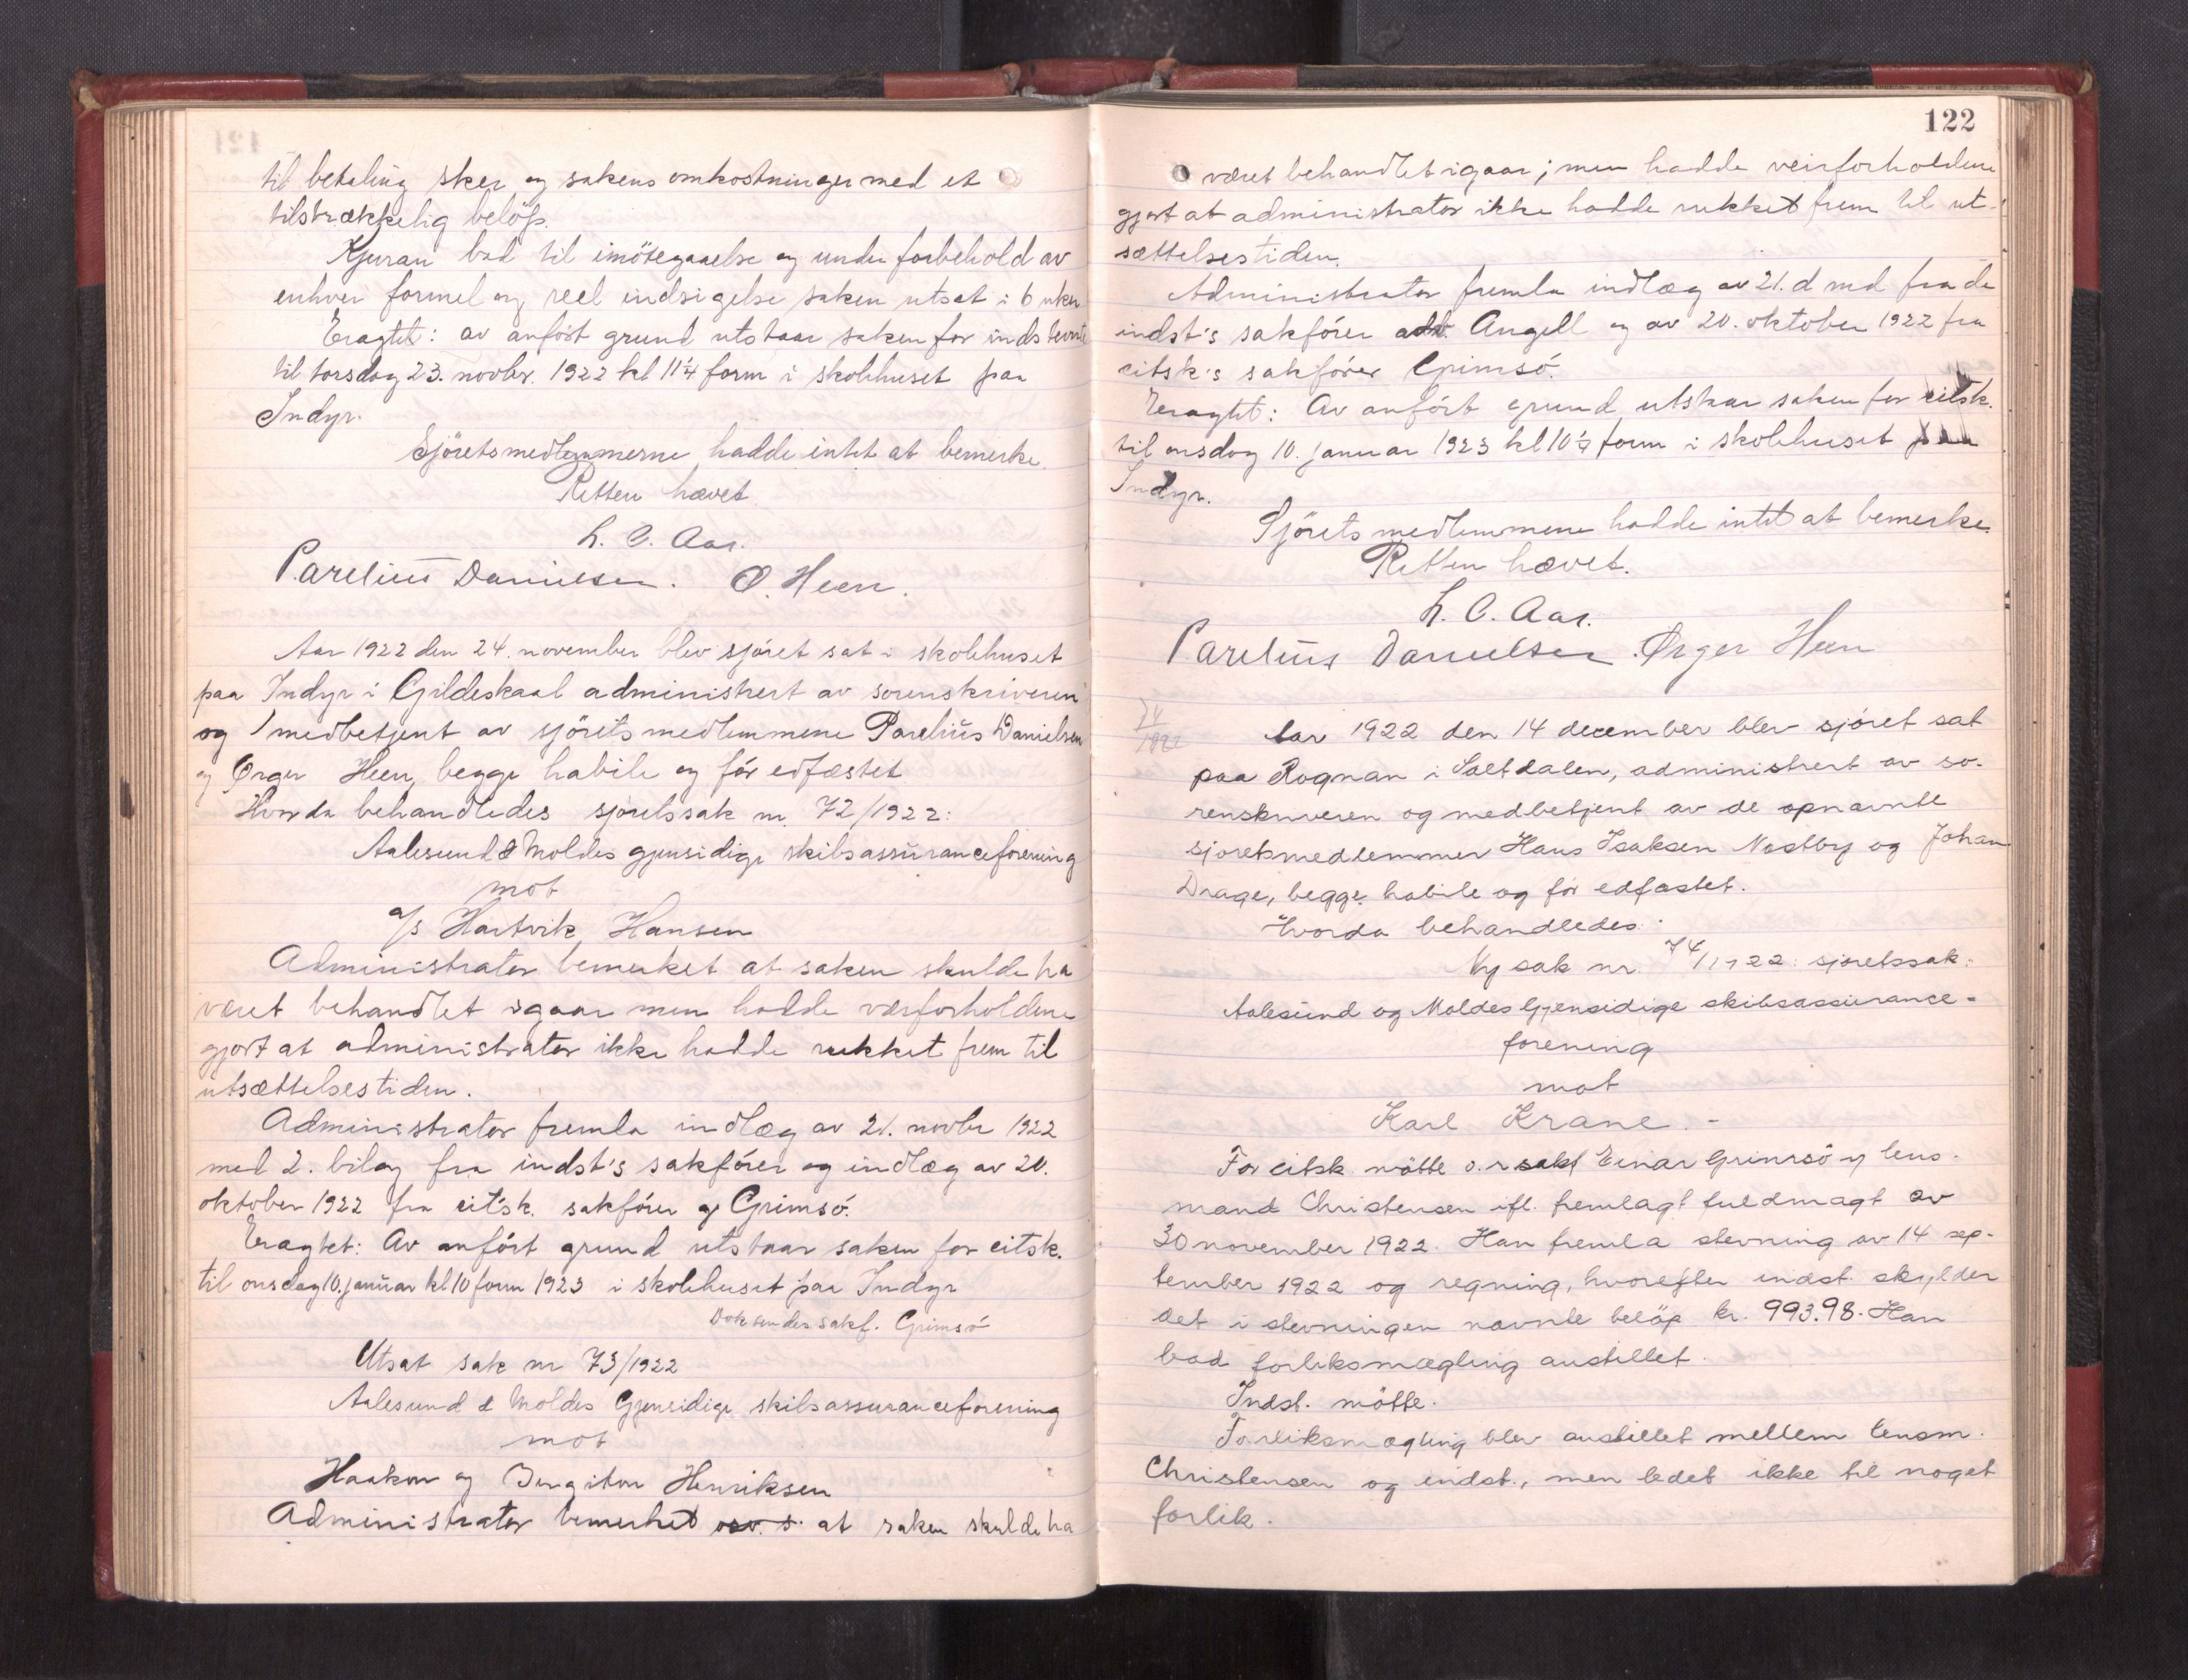 til betaling sker og sakens omkostninger med et
tilstrækkelig beløp.
Kjuran bad til imötegaaelse og under forbehold av
enhver formel og reel indsigelse saken utsat i 6 uker
Eragtet: av anfört grund utstaar saken for indstevnte
til torsdag 23. novbr. 1922 kl 11¼ form i skolehuset paa
Indyr.
Sjöretsmedlemmerne hadde intet at bemerke.
Retten hævet
h. C. Aar.
Parelius Danielsen. O. Heen.
Aar 1922 den 24. november blev sjöret sat i skolehuset
paa Indyr i Gildeskaal administrert av sorenskriveren
og medbetjent av sjöretsmedlemmene Parelius Danielsen
og Ørger Heen, begge habile og för edfæstet
Hvorda behandledes sjöretssak nr. 72/1922:
Aalesund & Moldes gjensidige skibsassuranceforening
mot
a/s Hartvik Hansen
Administrator bemerket at saken skulde ha
været behandlet igaar men hadde værforholdene
gjort at administrator ikke hadde rukket frem til
utsættelsestiden.
Administrator fremla indlæg av 21. novbr 1922
med 2. bilag fra indst's sakförer og indlæg av 20.
oktober 1922 fra citsk. sakförer og Grimsö.
Eragtet: Av anfört grund utstaar saken for citsk.
til onsdag 10. januar kl 10 form 1923 i skolehuset paa Indyr
Dok sendes sakf. Grimsö
Utsat sak nr 73/1922
Aalesund & Moldes Gjensidige skibsassuranceforening
mot
Haakon og Ingiton Henriksen
Administrator bemerket at saken skulde ha
122
været behandlet igaar; men hadde veirforholdene
gjort at administrator ikke hadde rukket frem til ut-
sættelsestiden.
Administrator fremla indlæg av 21. d md. fra de
indst's sakförer adv. Angell og av 20. oktober 1922 fra
citsk's sakförer Grimsö.
Eragtet: Av anfört grund utstaar saken for citsk.
til onsdag 10. januar 1923 kl 10¼ form i skolehuset paa
Indyr.
Sjöretsmedlemmene hadde intet at bemerke.
Retten hævet.
h. C. Aar.
Parelius Danielsen. Ørger Heen
74
1922
Aar 1922 den 14 december blev sjöret sat
paa Rognan i Saltdalen, administrert av so-
renskriveren og medbetjent av de opnævnte
sjöretsmedlemmer Hans Isaksen Nestby og Johan
Drage, begge habile og för edfæstet.
Hvorda behandledes:
Ny sak nr. 74/1922: sjöretssak:
Aalesund og Moldes Gjensidige skibsassurance-
forening
mot
Karl Krane. -
For citsk. mötte o.r.sakf Einar Grimsö v lens-
mand Christensen ifl. fremlagt fuldmagt av
30 november 1922. Han fremla stevning av 14 sep-
tember 1922 og regning, hvorefter indst. skylder
det i stevningen nævnte beløp kr. 993.98. Han
bad forliksmægling anstillet.
Indst. mötte.
Forliksmægling blev anstillet mellem lensm.
Christensen og indst., men ledet ikke til noget
forlik.